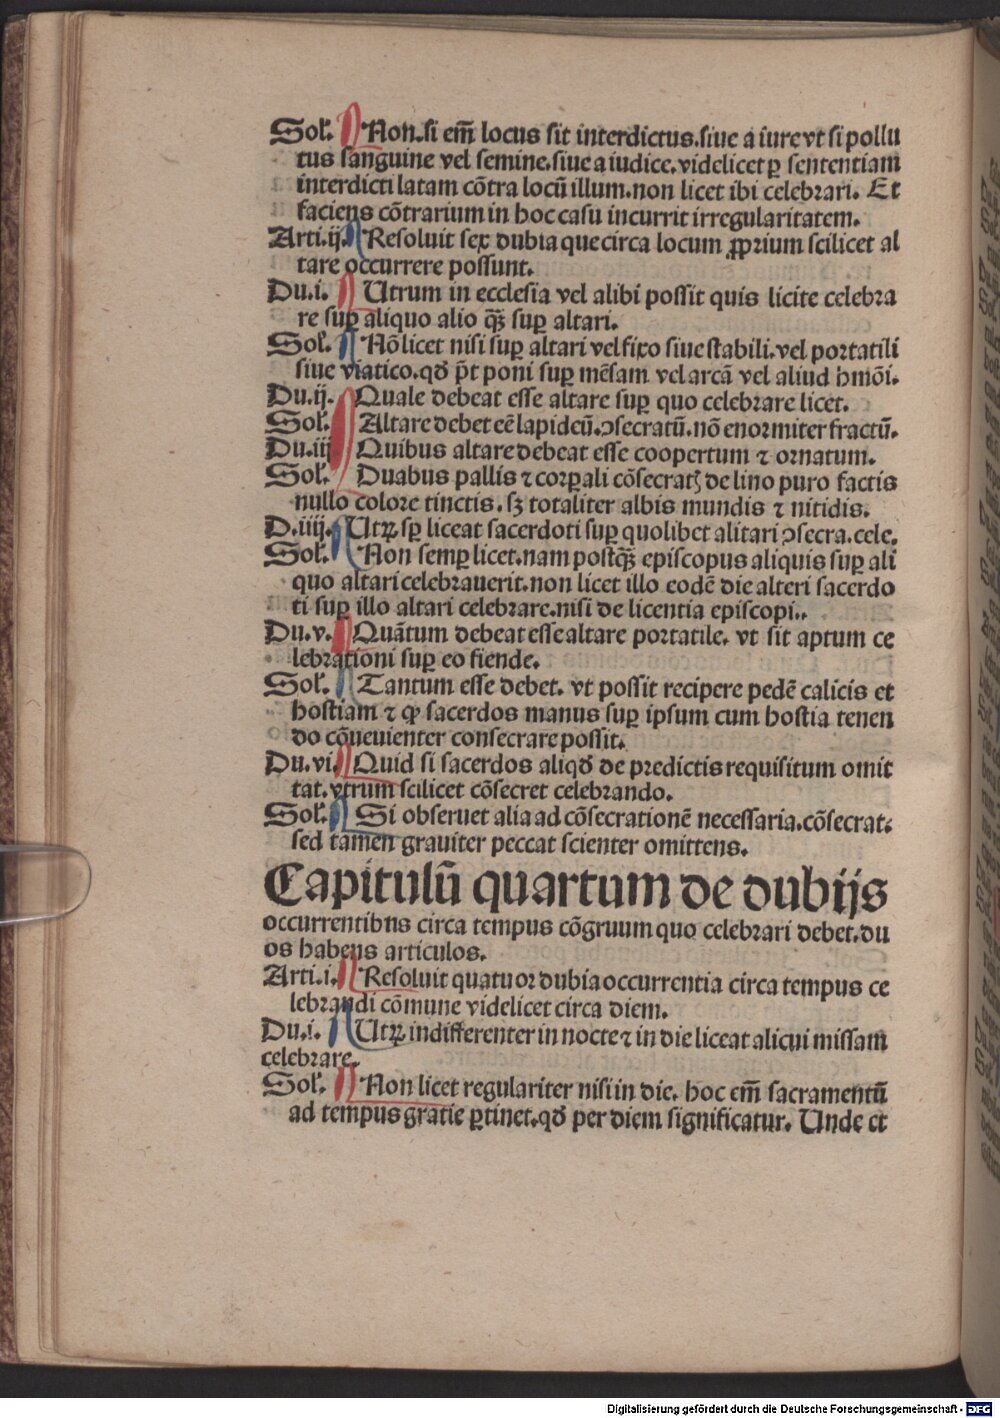 Sol̃. ¶ Non.si em̃ locus sit interdictus.siue a iure vt si pollu
tus sanguine vel semine.siue a iudice.videlicet ꝑ sententiam
interdicti latam cõtra locũ illum.non licet ibi celebrari. Et
faciens cõtrarium in hoc casu incurrit irregularitatem.
Arti.ij. ¶ Resoluit sex dubia que circa locum ꝓprium scilicet al
tare occurrere possunt.
Du.i. ¶ Utrum in ecclesia vel alibi possit quis licite celebra
re suꝑ aliquo alio q̃ꝫ suꝑ altari.
Sol̃. ¶ Nõ licet nisi suꝑ altari vel fixo siue stabili.vel portatili
siue viatico.qđ p̃t poni suꝑ mẽsam vel arcã vel aliud hmõi.
Du.ij. Quale debeat esse altare suꝑ quo celebrare licet.
Sol̃. Altare debet eẽ lapideũ.ꝯsecratũ.nõ enormiter fractũ.
Du.iij Quibus altare debeat esse coopertum ⁊ ornatum.
Sol̃. Duabus pallis ⁊ corꝑali cõsecratꝭ de lino puro factis
nullo colore tinctis.sꝫ totaliter albis mundis ⁊ nitidis.
D.iiij. ¶ Utꝝ sꝑ liceat sacerdoti suꝑ quolibet alitari ꝯsecra.cele.
Sol̃. ¶ Non semꝑ licet.nam postq̃ꝫ episcopus aliquis suꝑ ali
quo altari celebrauerit.non licet illo eodẽ die alteri sacerdo
ti suꝑ illo altari celebrare.nisi de licentia episcopi..
Du.v. ¶ Quãtum debeat esse altare portatile. vt sit aptum ce
lebrationi suꝑ eo fiende.
Sol̃. ¶ Tantum esse debet. vt possit recipere pedẽ calicis et
hostiam ⁊ ꝙ sacerdos manus suꝑ ipsum cum hostia tenen
do cõueuienter consecrare possit.
Du.vi. ¶ Quid si sacerdos aliqđ de predictis requisitum omit
tat.vtrum scilicet cõsecret celebrando.
Sol̃. ¶ Si obseruet alia ad cõsecrationẽ necessaria.cõsecrat.
sed tamen grauiter peccat scienter omittens.
Capitulũ quartum de dubijs
occurrentibns circa tempus cõgruum quo celebrari debet.du
os habens articulos.
Arti.i. ¶ Resoluit quatuor dubia occurrentia circa tempus ce
lebrandi cõmune videlicet circa diem.
Du.i. ¶ Utꝝ indifferenter in nocte ⁊ in die liceat alicui missam
celebrare.
Sol̃. ¶ Non licet regulariter nisi in die. hoc em̃ sacramentũ
ad tempus gratie ꝑtinet.qđ per diem significatur. Unde et
Digitalisierung gefördert durch die Deutsche Forschungsgemeinschaft - DFG